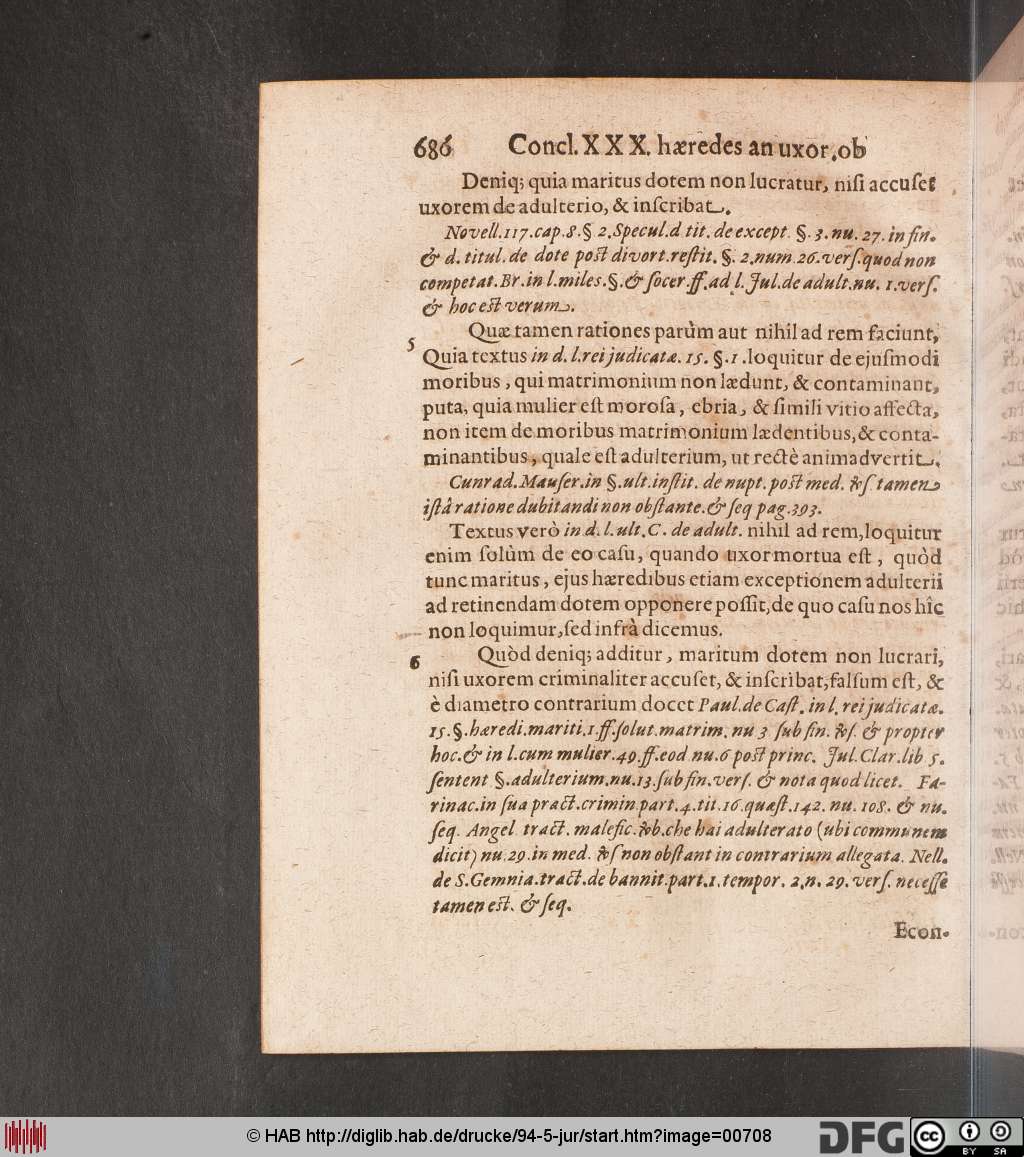 686 Concl. XXX. hæredes an uxor, ob
Deniq; quia maritus dotem non lucratur, nisi accuset
uxorem de adulterio, & inscribat.
Novell. 117. cap. 8. §. 2. Specul. d. tit. de except. §. 3. nu. 27. in fin.
& d. titul. de dote post divort. restit. §. 2. num. 26. vers. quod non
competat. Br. in l. miles. §. & socer. ff. ad l. Jul. de adult. nu. 1. vers.
& hoc est verum.
Quæ tamen rationes parùm aut nihil ad rem faciunt,
5 Quia textus in d. l. rei judicatæ. 15. §. 1. loquitur de ejusmodi
moribus, qui matrimonium non lædunt, & contaminant,
puta, quia mulier est morosa, ebria, & simili vitio affecta,
non item de moribus matrimonium lædentibus, & conta-
minantibus, quale est adulterium, ut rectè animadvertit.
Cunrad. Mauser. in §. ult. instit. de nupt. post med. &s. tamen
istâ ratione dubitandi non obstante. & seq pag. 393.
Textus verò in d. l. ult. C. de adult. nihil ad rem, loquitur
enim solùm de eo casu, quando uxor mortua est, quòd
tunc maritus, ejus hæredibus etiam exceptionem adulterii
ad retinendam dotem opponere possit, de quo casu nos hîc
non loquimur, sed infrà dicemus.
6 Quòd deniq; additur, maritum dotem non lucrari,
nisi uxorem criminaliter accuset, & inscribat, falsum est, &
è diametro contrarium docet Paul. de Cast. in l. rei judicatæ.
15. §. hæredi. mariti. 1. ff. solut. matrim. nu 3 sub fin. &s. & propter
hoc. & in l. cum mulier. 49. ff. eod. nu. 6 post princ. Jul. Clar. lib. 5.
sentent §. adulterium. nu. 13. sub fin. vers. & nota quod licet. Fa-
rinac. in sua pract. crimin. part. 4. tit. 16. quæst. 142. nu. 108. & nu.
seq. Angel. tract. malefic. &b. che hai adulterato (ubi communem
dicit) nu. 29. in med. &s non obstant in contrarium allegata. Nell.
de S. Gemnia. tract. de bannit. part. 1. tempor. 2. n. 29. vers. necesse
tamen est. & seq.
Econ-
© HAB http://diglib.hab.de/drucke/94-5-jur/start.htm?image=00708
DFG
cc BY SA